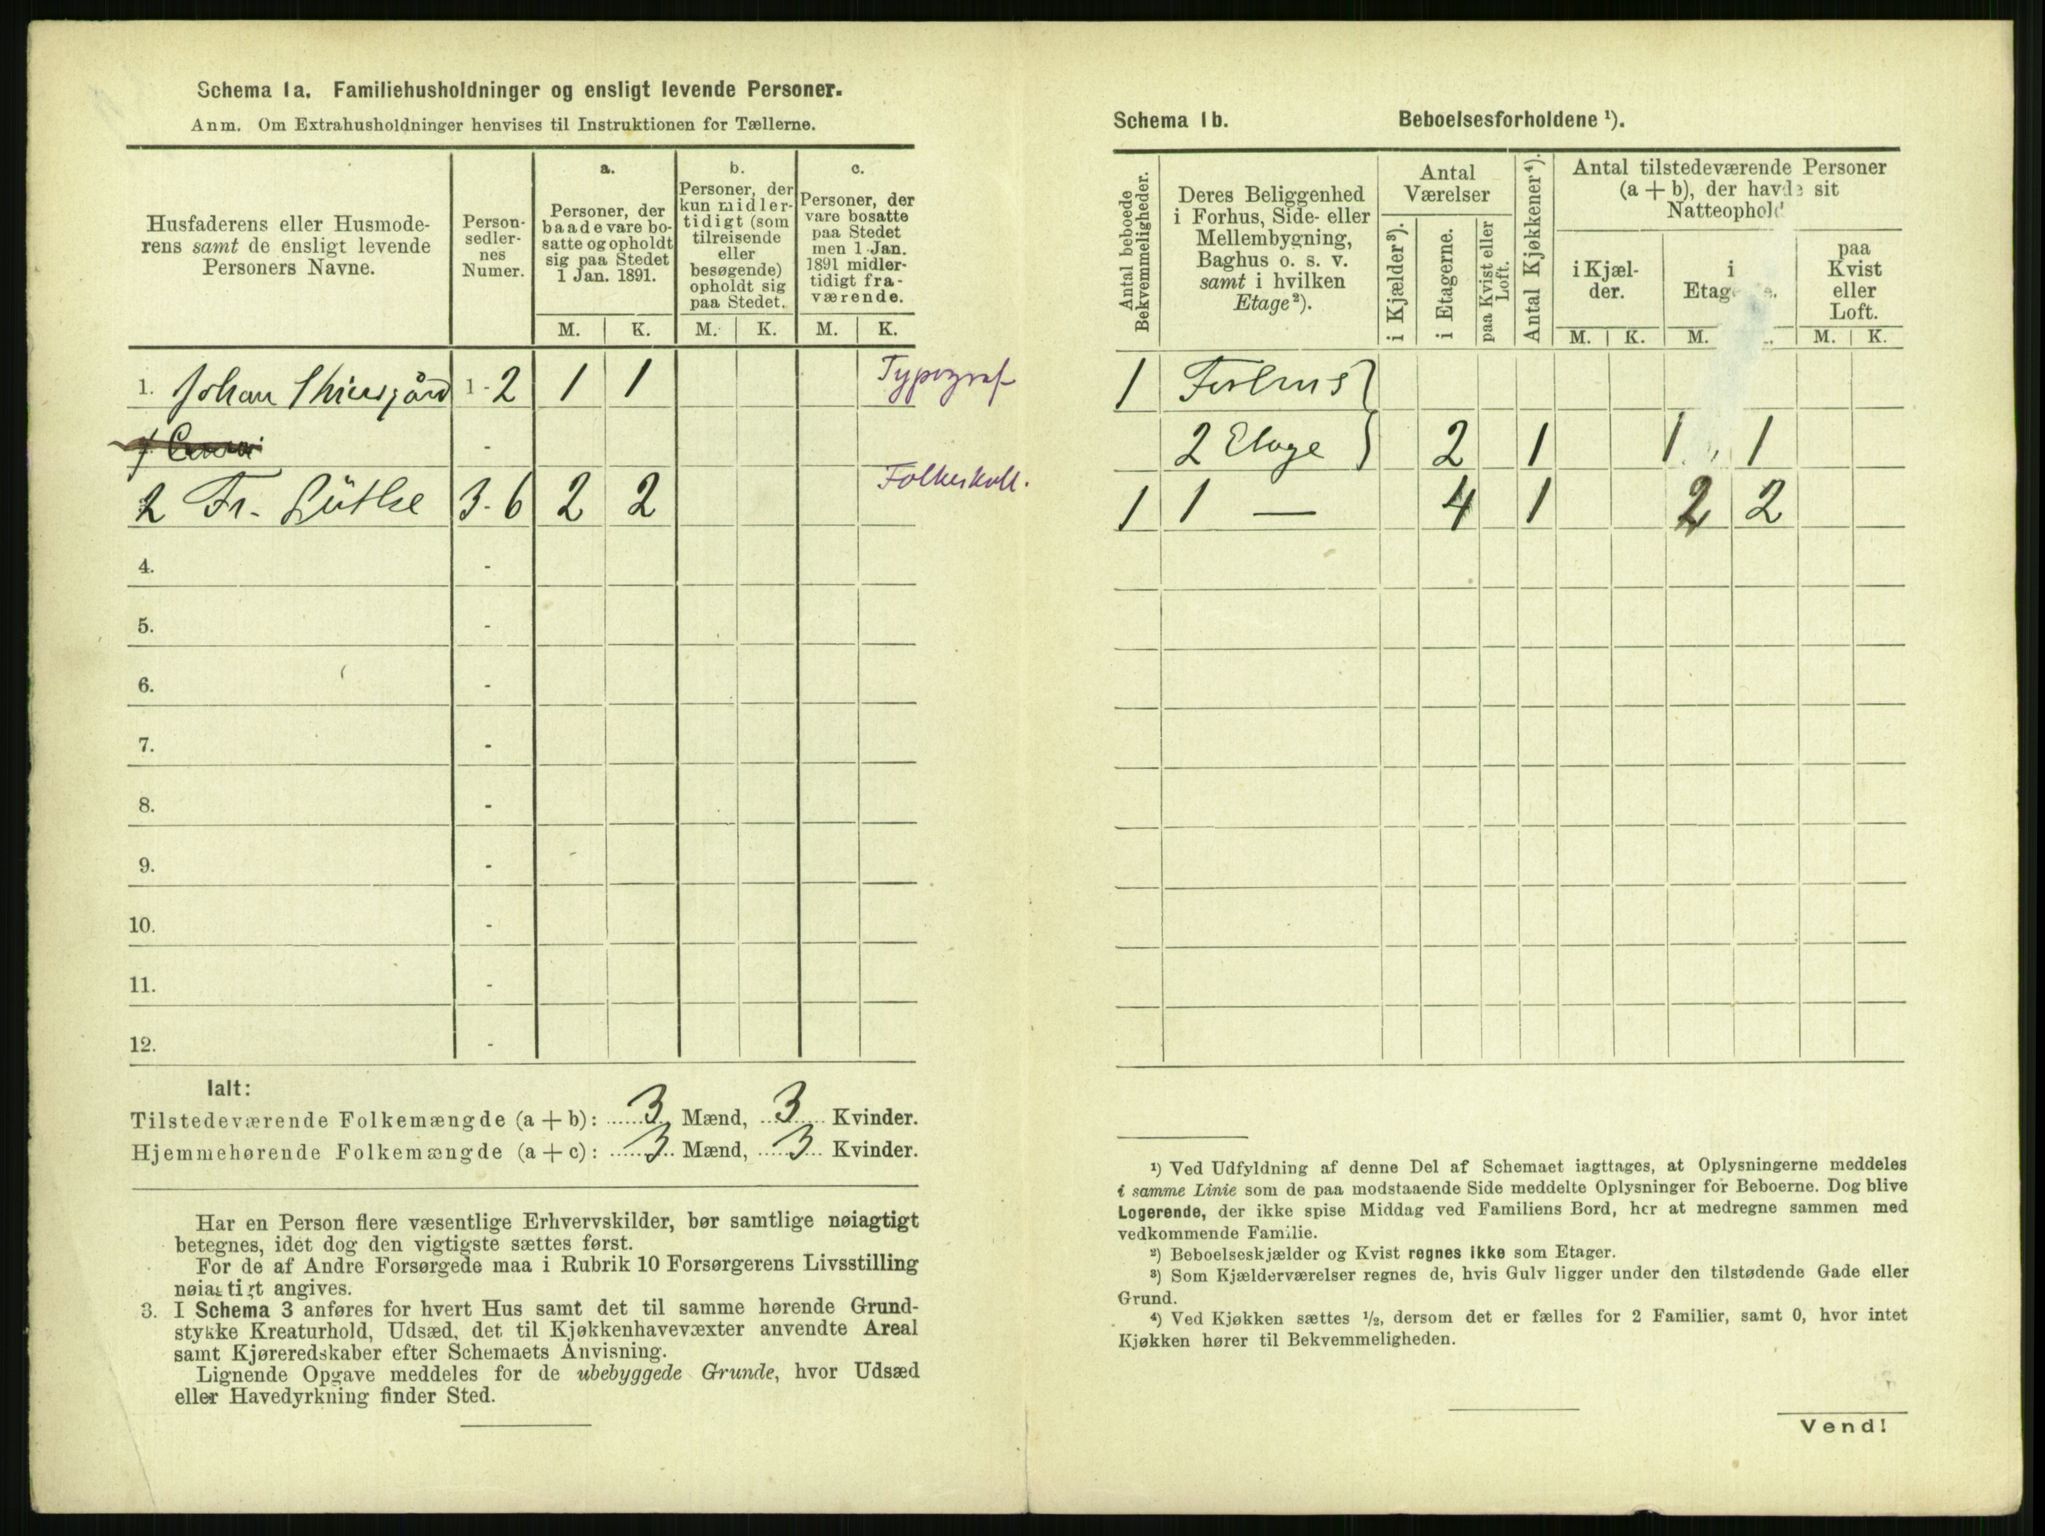 Schema 1a. Familiehusholdninger og ensligt levende Personer.
Anm. Om Extrahusholdninger henvises til Instruktionen for Tællerne.
Husfaderens eller Husmode-
rens samt de ensligt levende
Personers Navne.
Person-
sedler-
nes
Numer.
a.
Personer, der
baade vare bo-
satte og opholdt
sig paa Stedet
1 Jan. 1891.
M. K.
b.
Personer, der
kun midler-
tidigt (som
tilreisende
eller
besøgende)
opholdt sig
paa Stedet.
M. K.
c.
Personer, der
vare bosatte
paa Stedet
men 1 Jan.
1891 midler-
tidigt fra-
værende.
M. K.
1. Johan 1 - 2 1 1 Typograf
-
2 Fr. Lütke 3 - 6 2 2
4. -
5. -
6. -
7. -
8. -
9. -
10. -
11. -
12. -
Ialt:
Tilstedeværende Folkemængde (a + b): 3 Mænd, 3 Kvinder.
Hjemmehørende Folkemængde (a + c): 3 Mænd, 3 Kvinder.
Har en Person flere væsentlige Erhvervskilder, bør samtlige nøiagtigt
betegnes, idet dog den vigtigste sættes først.
For de af Andre Forsørgede maa i Rubrik 10 Forsørgerens Livsstilling
nøiagtigt angives.
3. I Schema 3 anføres for hvert Hus samt det til samme hørende Grund-
stykke Kreaturhold, Udsæd, det til Kjøkkenhavevæxter anvendte Areal
samt Kjøreredskaber efter Schemaets Anvisning.
Lignende Opgave meddeles for de ubebyggede Grunde, hvor Udsæd
eller Havedyrkning finder Sted.
Schema 1b. Beboelsesforholdene ¹).
Antal beboede
Bekvemmeligheder.
Deres Beliggenhed
i Forhus, Side- eller
Mellembygning,
Baghus o. s. v.
samt i hvilken
Etage²).
Antal
Værelser
i Kjælder³).
i Etagerne.
paa Kvist eller
Loft.
Antal Kjøkkener⁴).
Antal tilstedeværende Personer
(a + b), der havde sit
Natteophold
i Kjæl-
der.
M. K.
i
Etag
M.
paa
Kvist
eller
Loft.
M. K.
1 Forhus }
2 Etage } 2 1 1 1
1 1 — 4 1 2 2
¹) Ved Udfyldning af denne Del af Schemaet iagttages, at Oplysningerne meddeles
i samme Linie som de paa modstaaende Side meddelte Oplysninger for Beboerne. Dog blive
Logerende, der ikke spise Middag ved Familiens Bord, her at medregne sammen med
vedkommende Familie.
²) Beboelseskjælder og Kvist regnes ikke som Etager.
³) Som Kjælderværelser regnes de, hvis Gulv ligger under den tilstødende Gade eller
Grund.
⁴) Ved Kjøkken sættes ½, dersom det er fælles for 2 Familier, samt 0, hvor intet
Kjøkken hører til Bekvemmeligheden.
Vend!